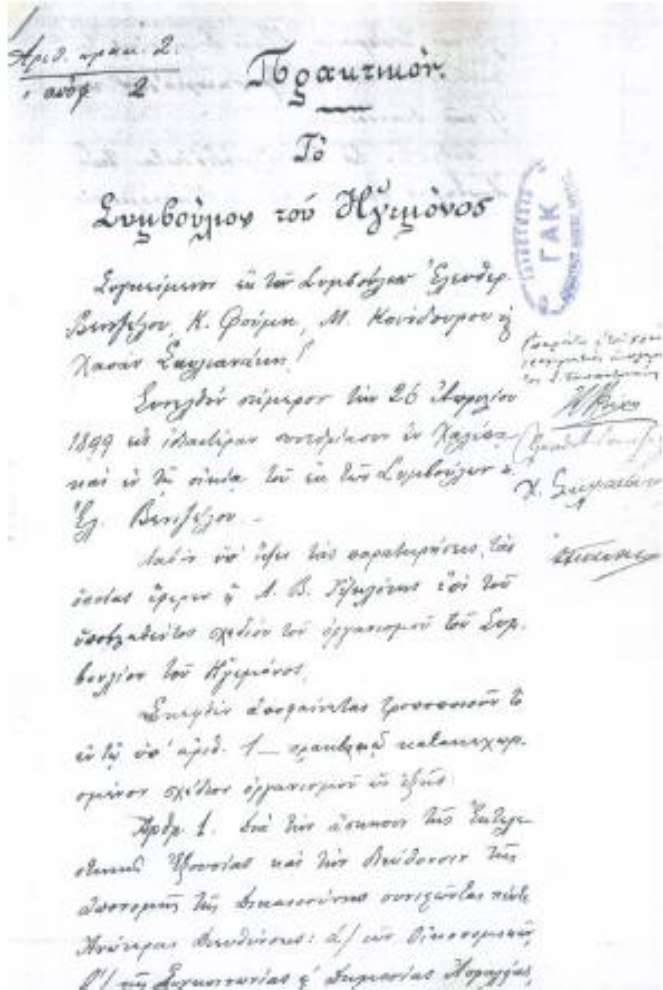 Ἀριθ. πρακ. 2.
ἀπόφ 2
Πρακτικόν.
Τὸ
Συμβούλιον τοῦ Ἡγεμόνος
ΓΑΚ
Συγκείμενον ἐκ τῶν Συμβούλων Ἐλευθερ.
Βενιζέλου, Κ. Φούμη, Μ. Κούνδουρου ἢ
Χασὰν Σκυλιανάκη
Συνελθὸν σήμερον τὴν 26 Ἀπριλίου
1899 εἰς ἰδιαιτέραν συνεδρίασιν ἐν Χαλέπᾳ
καὶ ἐν τῇ οἰκίᾳ τοῦ ἐκ τῶν Συμβούλων κ.
Ἐλ. Βενιζέλου –
Λαβὸν ὑπ' ὄψει τὰς παρατηρήσεις, τὰς
ὁποίας ἔφερεν ἡ Α. Β. Ὑψηλότης ἐπὶ τοῦ
ὑποβληθέντος σχεδίου τοῦ ὀργανισμοῦ τοῦ Συμ-
βουλίου τοῦ Ἡγεμόνος,
Σκεφθὲν ἀποφαίνεται τροποποιοῦν τὸ
ἐν τῷ ὑπ' ἀριθ. 1 – πρακτικῷ κατακεχωρ-
σμένον σχέδιον ὀργανισμοῦ ὡς ἑξῆς:
Ἄρθρ. 1. Διὰ τὴν ἄσκησιν τῆς Ἐκτελε-
στικῆς Ἐξουσίας καὶ τὴν διεύθυνσιν τῆς
ἀπονομῆς τῆς Δικαιοσύνης συνιστῶνται πέντε
Ἀνώτεραι Διευθύνσεις: α'/ τῶν Οἰκονομικῶν
β'/ τῆς Συγκοινωνίας ἢ Δημοσίας Ἀσφαλείας,